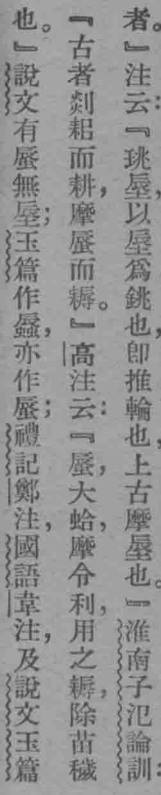 者。』注云:『珧蜃,以蜃爲銚也,卽推輪也,上古摩蜃也。』淮南子氾論訓:
『古者剡耜而耕,摩蜃而耨。』高注云:『蜃,大蛤,摩令利,用之耨,除苗穢
也。』說文有蜃無蜃;玉篇作蜃,亦作蜃;禮記鄭注,國語韋注,及說文玉篇